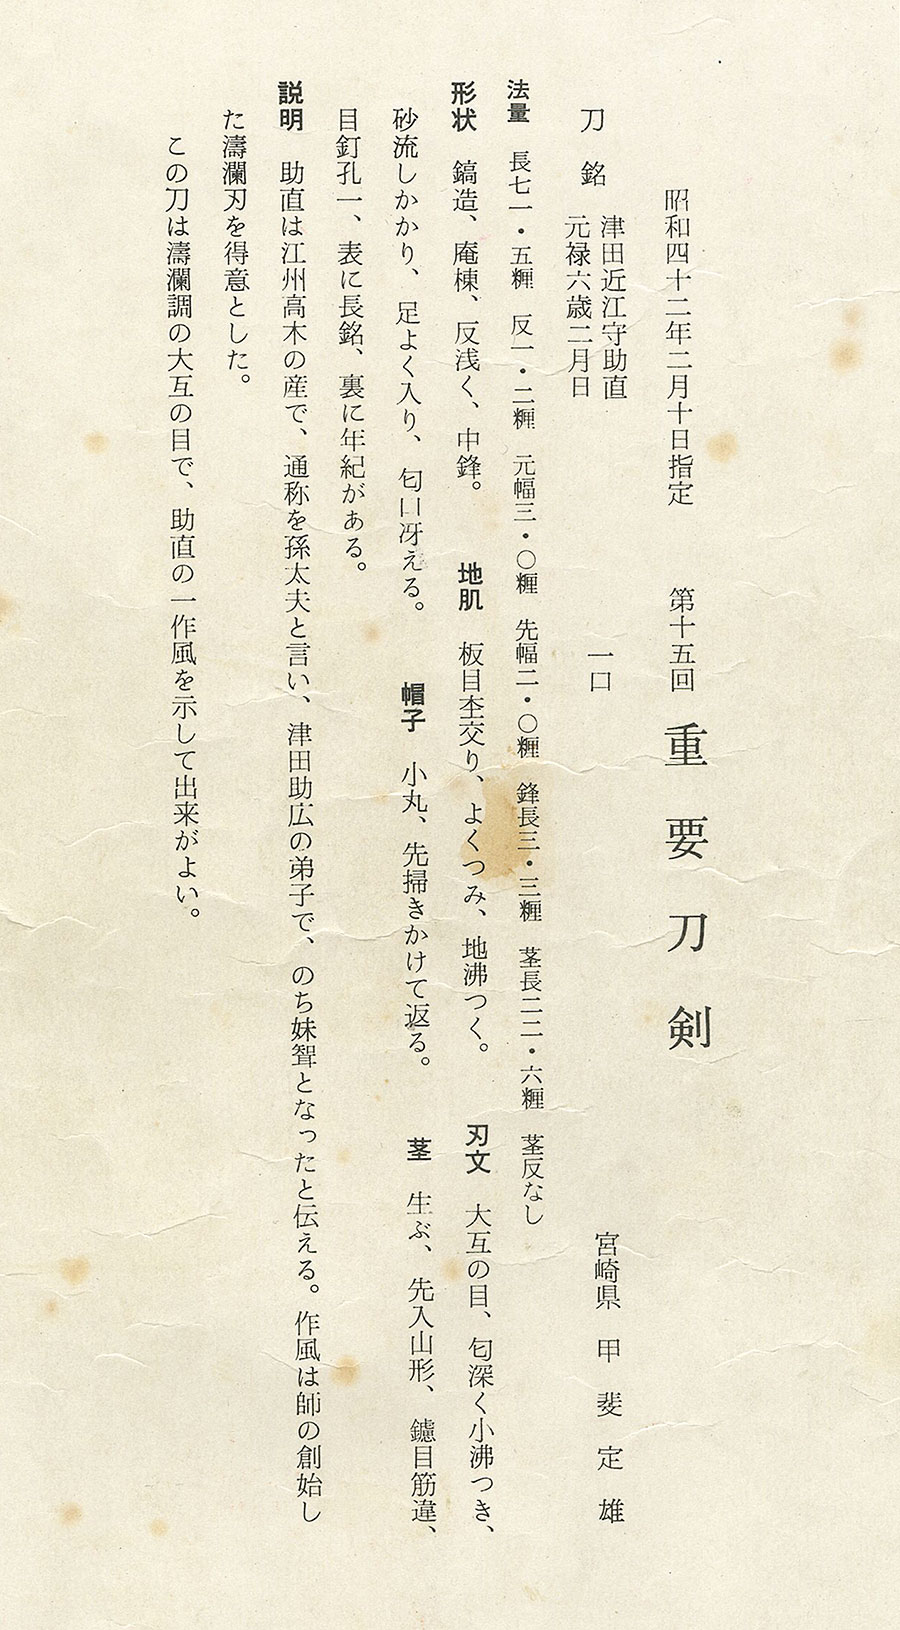 昭和四十二年二月十日指定　第十五回　重要刀剣
刀　銘　津田近江守助直　一口　宮崎県　甲斐定雄
元禄六歳二月日
法量　長七一・五糎　反一・二糎　元幅三・〇糎　先幅二・〇糎　鋒長三・三糎　茎長二二・六糎　茎反なし
形状　鎬造、庵棟、反浅く、中鋒。　地肌　板目杢交り、よくつみ、地沸つく。　刃文　大互の目、匂深く小沸つき、
砂流しかかり、足よく入り、匂口冴える。　帽子　小丸、先掃きかけて返る。　茎　生ぶ、先入山形、鑢目筋違、
目釘孔一、表に長銘、裏に年紀がある。
説明　助直は江州高木の産で、通称を孫太夫と言い、津田助広の弟子で、のち妹聟となったと伝える。作風は師の創始し
た濤瀾刃を得意とした。
この刀は濤瀾調の大互の目で、助直の一作風を示して出来がよい。